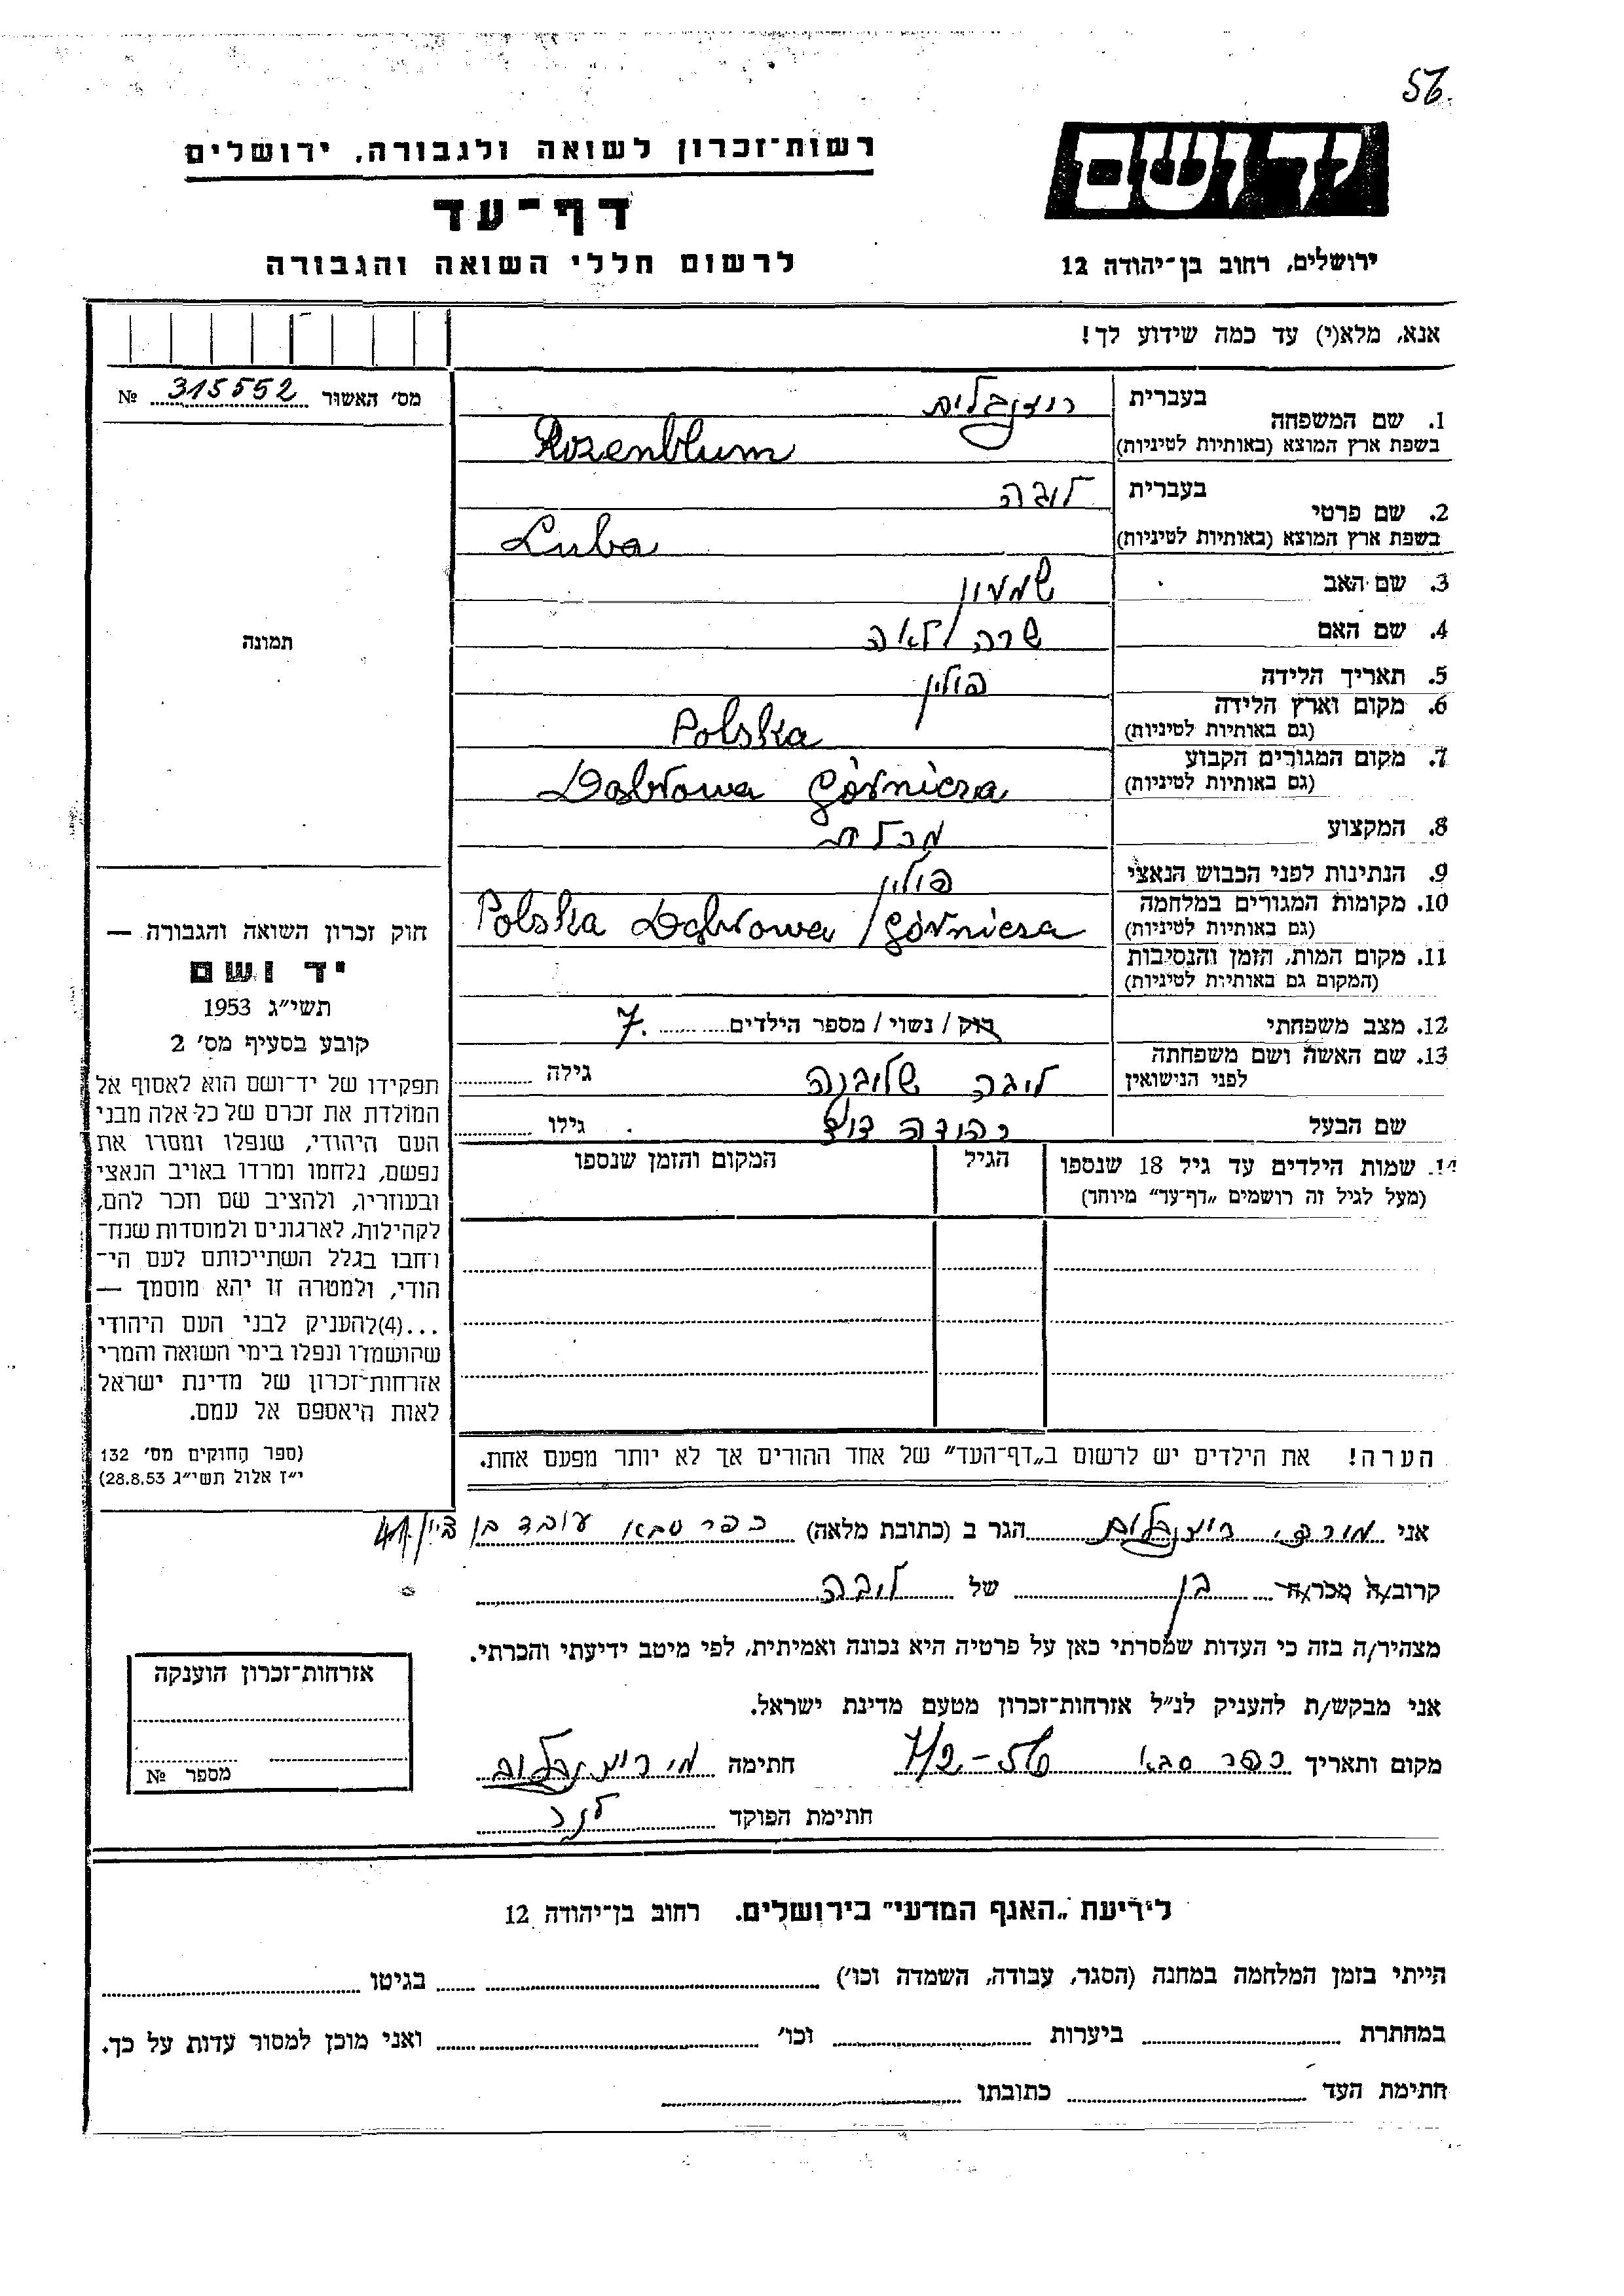 56.
יד ושם
רשות־זכרון לשואה ולגבורה, ירושלים
דף־עד
לרשום חללי השואה והגבורה
ירושלים, רחוב בן־יהודה 12
אנא, מלא(י) עד כמה שידוע לך!
מס׳ האשור 315552 №
1. שם המשפחה
בעברית רוזנבלום
בשפת ארץ המוצא (באותיות לטיניות) Rozenblum
2. שם פרטי
בעברית לובה
בשפת ארץ המוצא (באותיות לטיניות) Luba
3. שם האב שמעון
4. שם האם שרה לאה
5. תאריך הלידה פולין
6. מקום וארץ הלידה
(גם באותיות לטיניות) Polska
7. מקום המגורים הקבוע
(גם באותיות לטיניות) Dąbrowa Górnicza
8. המקצוע
9. הנתינות לפני הכבוש הנאצי פולין
10. מקומות המגורים במלחמה
(גם באותיות לטיניות) Polska Dąbrowa Górnicza
11. מקום המות, הזמן והנסיבות
(המקום גם באותיות לטיניות)
12. מצב משפחתי רוק / נשוי / מספר הילדים 7.
13. שם האשה ושם משפחתה
לפני הנישואין לובה גילה
שם הבעל יהודה גילו
14. שמות הילדים עד גיל 18 שנספו
(מעל לגיל זה רושמים „דף־עד״ מיוחד)
הגיל
המקום והזמן שנספו
הערה! את הילדים יש לרשום ב„דף־העד״ של אחד ההורים אך לא יותר מפעם אחת.
תמונה
חוק זכרון השואה והגבורה —
יד ושם
תשי״ג 1953
קובע בסעיף מס׳ 2
תפקידו של יד־ושם הוא לאסוף אל
המולדת את זכרם של כל אלה מבני
העם היהודי, שנפלו ומסרו את
נפשם, נלחמו ומרדו באויב הנאצי
ובעוזריו, ולהציב שם וזכר להם,
לקהילות, לארגונים ולמוסדות שנח־
רחבו בגלל השתייכותם לעם הי־
הודי, ולמטרה זו יהא מוסמך —
...(4)להעניק לבני העם היהודי
שהושמדו ונפלו בימי השואה והמרי
אזרחות־זכרון של מדינת ישראל
לאות היאספם אל עמם.
(ספר החוקים מס׳ 132
י״ז אלול תשי״ג 28.8.53)
אני רוזנבלום הגר ב (כתובת מלאה) כפר סבא
קרוב/ה מכר/ה בן של לובה
מצהיר/ה בזה כי העדות שמסרתי כאן על פרטיה היא נכונה ואמיתית, לפי מיטב ידיעתי והכרתי.
אני מבקש/ת להעניק לנ״ל אזרחות־זכרון מטעם מדינת ישראל.
מקום ותאריך כפר סבא 7/2-56 חתימה רוזנבלום
חתימת הפוקד
אזרחות־זכרון הוענקה
מספר №
לידיעת „האגף המדעי״ בירושלים. רחוב בן־יהודה 12
הייתי בזמן המלחמה במחנה (הסגר, עבודה, השמדה וכו׳) בגיטו
במחתרת ביערות וכו׳ ואני מוכן למסור עדות על כך.
חתימת העד כתובתו